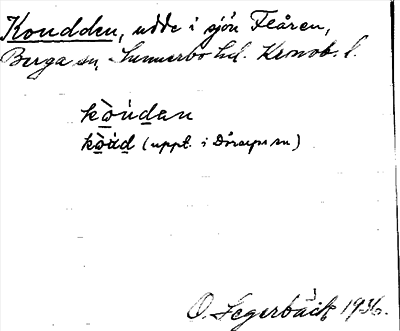 Koudden, udde i sjön Flåren,
Berga sn, Sunnerbo hd. Kronob. l.
kòu̱dan
kòu̱d (uppt. i Dörarps sn)
O. Segerbäck 1936.